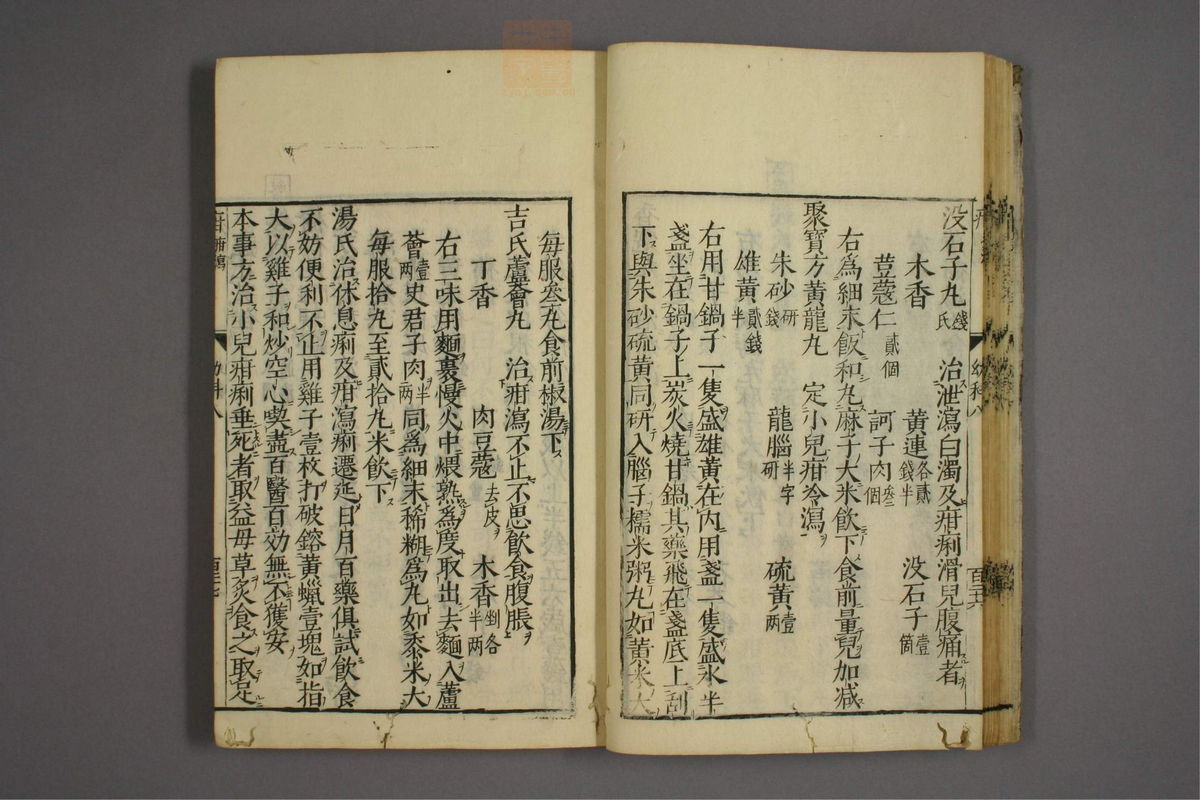 没石子丸 錢氏 治泄瀉白濁及疳痢滑兒腹痛者
木香 黄連 各貳錢半 没石子 壹箇
荳蔻仁 貳個 訶子肉 叁個
右爲細末飯和丸麻子大米飲下食前量兒加減
聚寶方黄龍丸 定小兒疳冷瀉
朱砂 研錢 龍腦 半字研 硫黄 壹兩
雄黄 貳錢半
右用甘鍋子一隻盛雄黄在内用盞一隻盛水半
盞坐在鍋子上炭火燒甘鍋其藥飛在盞底上刮
下與朱砂硫黄同研入腦子糯米粥丸如黄米大
每服叁丸食前椒湯下
吉氏蘆薈丸 治疳瀉不止不思飲食腹脹
丁香 肉豆蔻 去皮 木香 剉各半兩
右三味用麵裹慢火中煨熟爲度取出去麵入蘆
薈 壹兩 史君子肉 半兩 同爲細末稀糊爲丸如黍米大
每服拾九至貳拾九米飲下
湯氏治休息痢及疳瀉痢遷延日月百藥俱試飲食
不妨便利不止用雞子壹枚打破鎔黄蠟壹塊如指
大以雞子和炒空心喫盡百醫百効無不獲安
本事方治小兒疳痢垂死者取益母草炙食之取足
幼科八